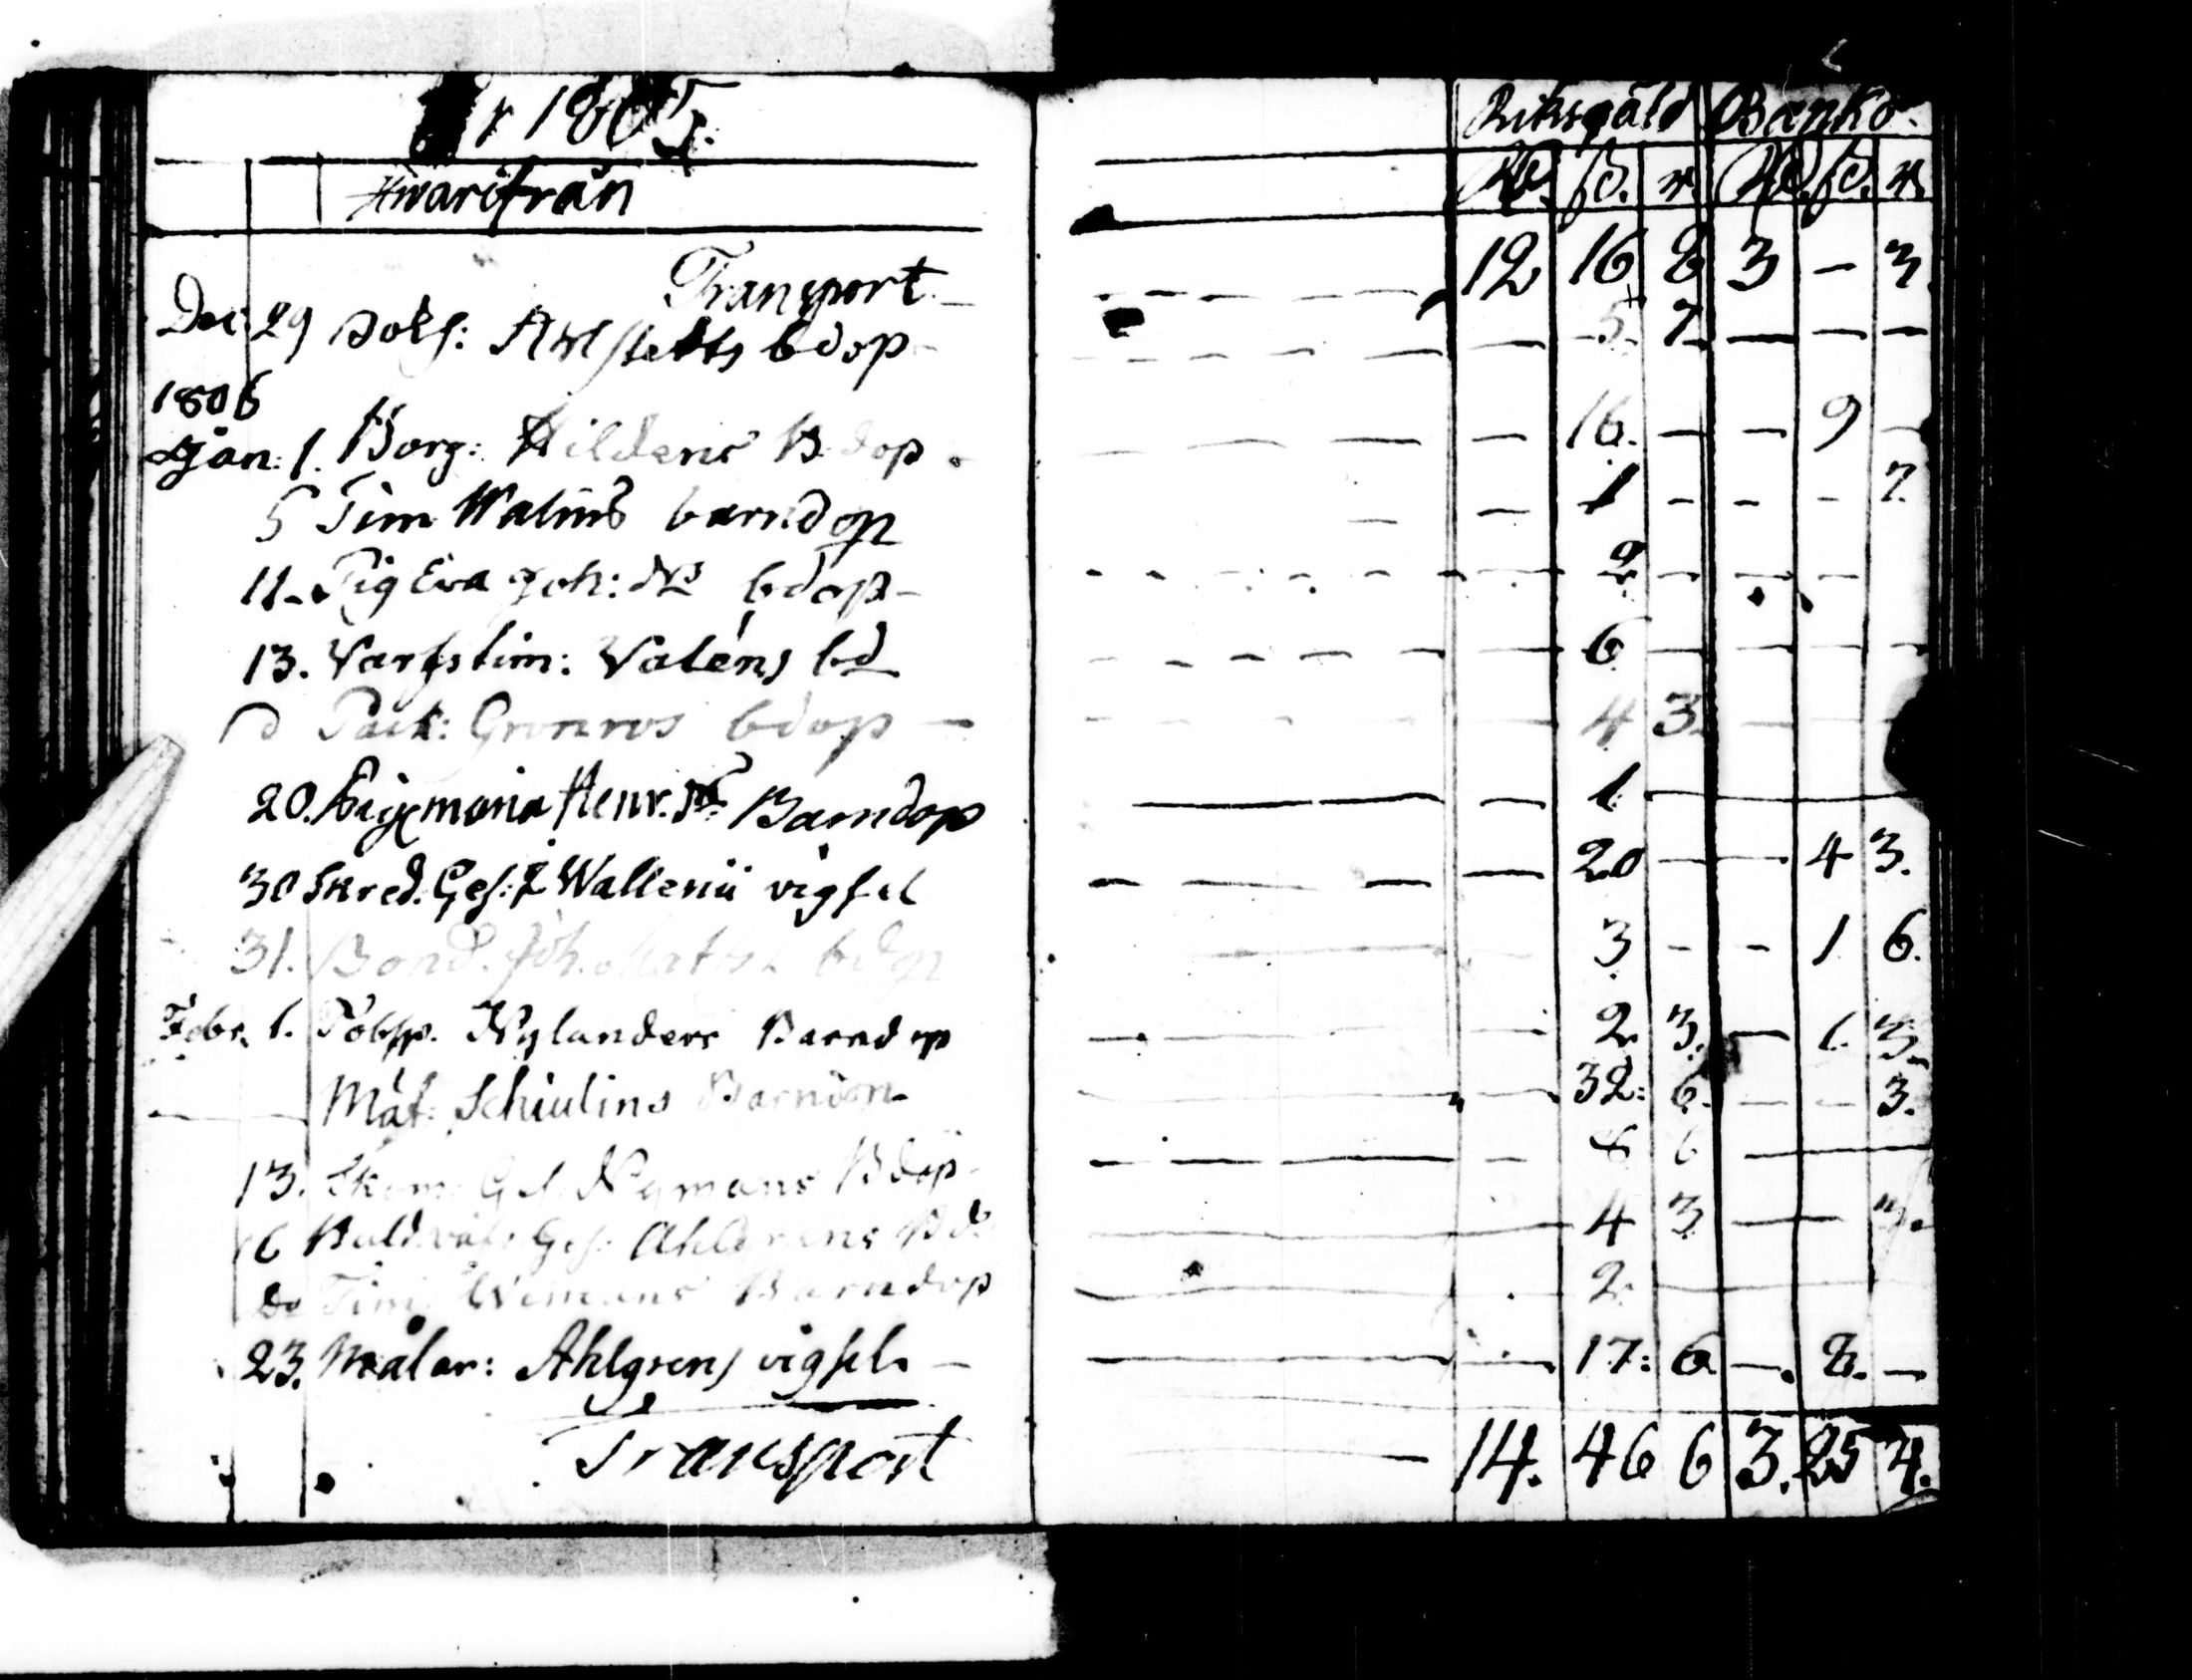 År 1805.
Riksgäld Banko.
Hvarifrån
Rd. ß. r Rd. ß. r
Transport - - - - - 12 16 8 3 - 3.
Dec. 29 bdop - - - - - - 5. 7. - - -
1806
Jan: 1. Borg: Hildens B dop. - - - - 16. - - 9 -
5 Tim Walins barndop - - 1 - - - 7.
11. Pig Eva Joh: dr bdop - - - - - - - 2 - - -
13. Varfstim: Valens bd - - - - - - 6 - - - -
d Pack: Gronros bdop - - - - 4 3. - -
20. Pig maria Henr. dr Barndop - - 1 -
30 Skred. Ges: J Wallenii vigsel - - - - 20 - - 4 3.
31. Bond. Joh. Mats. bdop - - 3 - - 1 6.
Febr. 1. Tobsp. Nylanders Barndop - - 2. 3. - 1. 3.
- Mat: Schiulins Barndop - - - 32: 6. - - 3.
13. Skom: Ges. Nymans Bdop - - - 8 6 -
16 Ges: Ahlgrens Bd - 4 3 - - 3.
do Tim: Wimans Barndop - 2. -
23. Målar: Ahlgrens vigsel. - - - 17: 6 -. 8. -
Transport - 14. 46 6 3. 25 4.